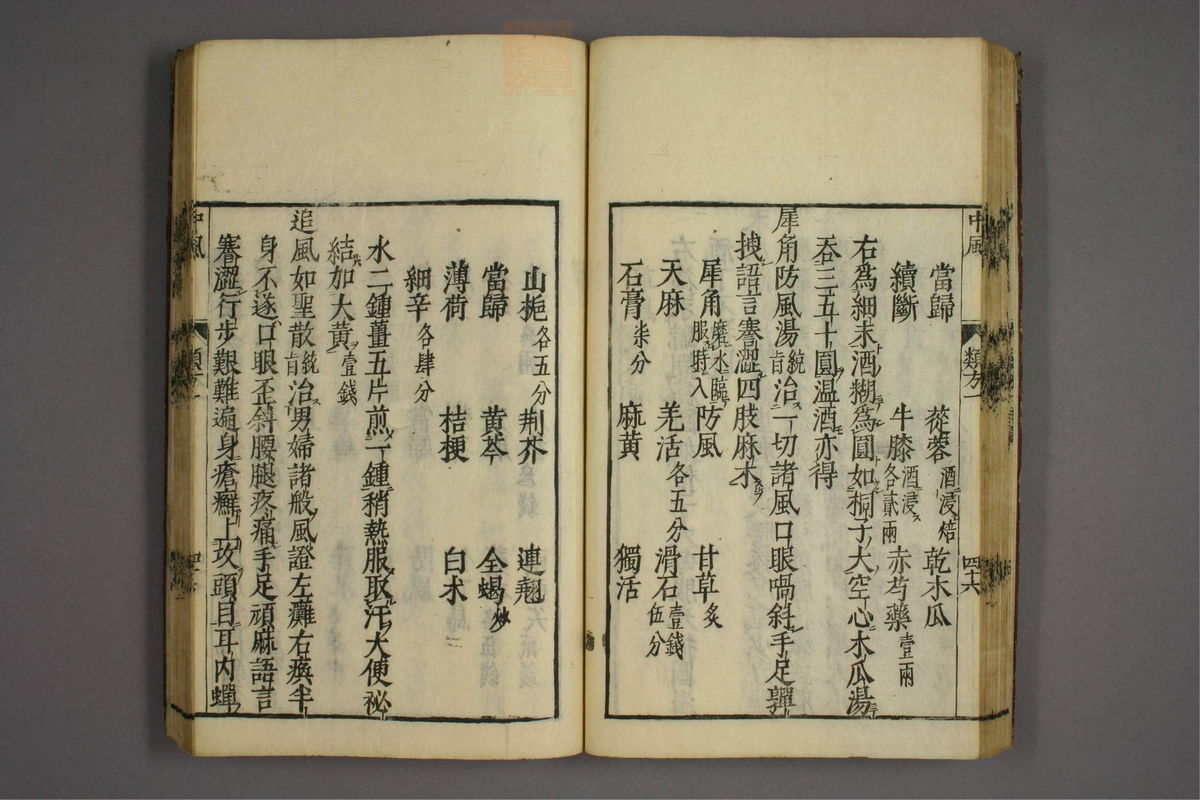 中風
類方一
四十六
當歸 蓯蓉酒浸焙 乾木瓜
續斷 牛膝酒浸各貳兩 赤芍藥壹兩
右爲細末酒糊爲圓如桐子大空心木瓜湯
吞三五十圓温酒亦得
犀角防風湯統旨治一切諸風口眼喎斜手足嚲
拽語言蹇澀四肢麻木
犀角磨水臨服時入 防風 甘草炙
天麻 羌活各五分 滑石壹錢伍分
石膏柒分 麻黄 獨活
山梔各五分 荆芥 連翹
當歸 黄芩 全蝎炒
薄荷 桔梗 白术
細辛各肆分
水二鍾薑五片煎一鍾稍熱服取汗大便祕
結加大黄壹錢
追風如聖散統旨治男婦諸般風證左癱右瘓半
身不遂口眼歪斜腰腿疼痛手足頑麻語言
蹇澀行步艱難遍身瘡癬上攻頭目耳内蟬
中風
類方一